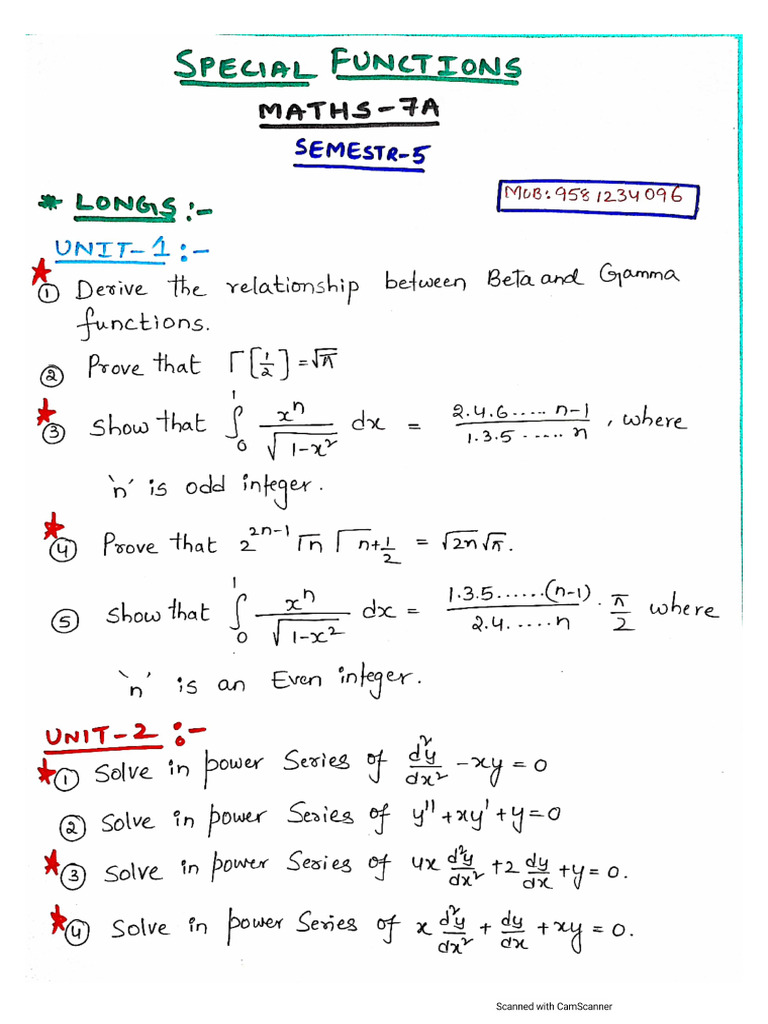 SPECIAL FUNCTIONS
MATHS-7A
SEMESTR-5
MOB: 9581234096
* LONGS :-
UNIT-1 :-
★ ① Derive the relationship between Beta and Gamma
functions.
② Prove that Γ[1/2] = √π
★ ③ Show that ∫₀¹ xⁿ/√(1-x²) dx = 2.4.6.....n-1 / 1.3.5.....n , where
'n' is odd integer.
★ ④ Prove that 2^(2n-1) Γn Γn+1/2 = √2n √π.
⑤ Show that ∫₀¹ xⁿ/√(1-x²) dx = 1.3.5......(n-1) / 2.4.....n . π/2 where
'n' is an Even integer.
UNIT-2 :-
★ ① Solve in power Series of d²y/dx² - xy = 0
② Solve in power Series of y'' + xy' + y = 0
★ ③ Solve in power Series of 4x d²y/dx² + 2 dy/dx + y = 0.
★ ④ Solve in power Series of x d²y/dx² + dy/dx + xy = 0.
Scanned with CamScanner